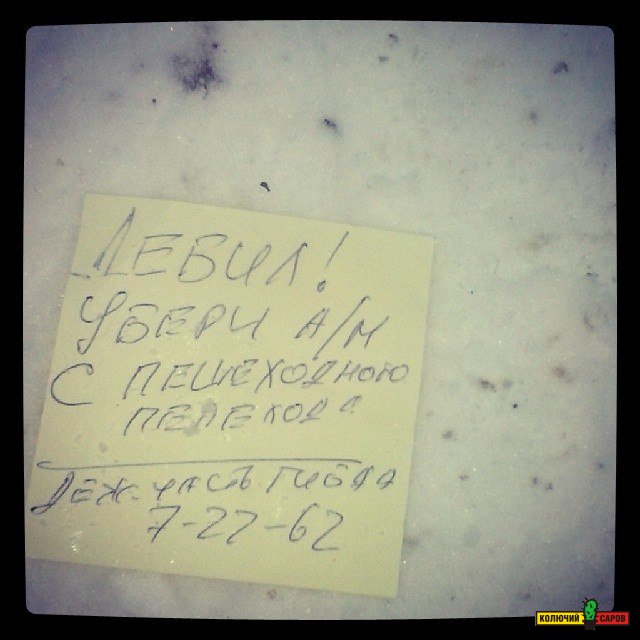 ДЕБИЛ!
УБЕРИ А/М
С ПЕШЕХОДНОГО
ПЕРЕХОДА
ДЕЖ. ЧАСТЬ ГИБДД
7-27-62
КОЛЮЧИЙ САРОВ